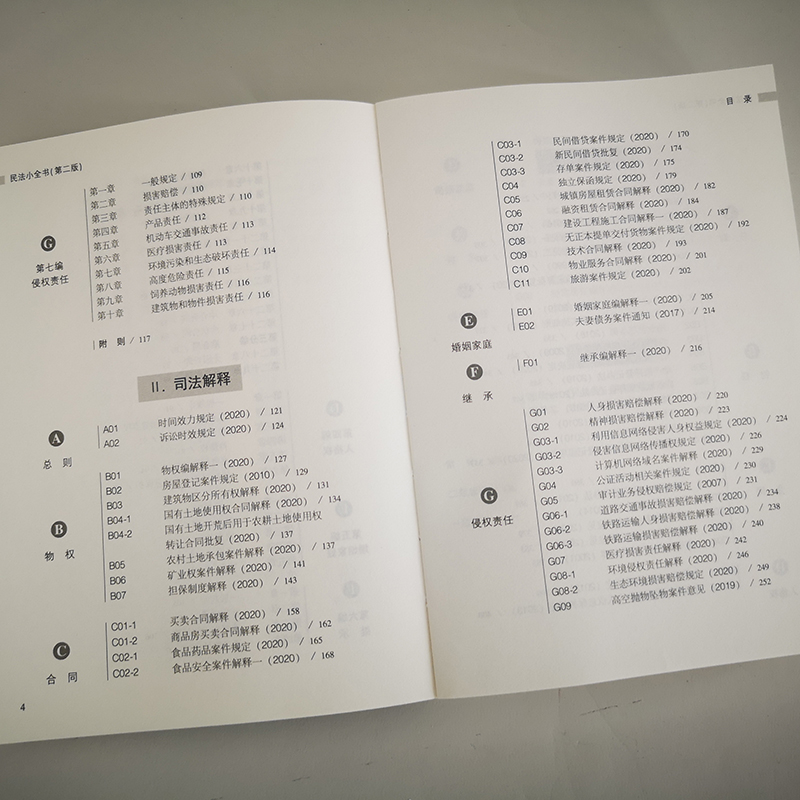 民法小全书(第二版)
G
第七编
侵权责任
第一章 一般规定 / 109
第二章 损害赔偿 / 110
第三章 责任主体的特殊规定 / 110
第四章 产品责任 / 112
第五章 机动车交通事故责任 / 113
第六章 医疗损害责任 / 113
第七章 环境污染和生态破坏责任 / 114
第八章 高度危险责任 / 115
第九章 饲养动物损害责任 / 116
第十章 建筑物和物件损害责任 / 116
附 则 / 117
II. 司法解释
A
总 则
A01 时间效力规定(2020) / 121
A02 诉讼时效规定(2020) / 124
B
物 权
B01 物权编解释一(2020) / 127
B02 房屋登记案件规定(2010) / 129
B03 建筑物区分所有权解释(2020) / 131
B04-1 国有土地使用权合同解释(2020) / 134
B04-2 国有土地开荒后用于农耕土地使用权
转让合同批复(2020) / 137
B05 农村土地承包案件解释(2020) / 137
B06 矿业权案件解释(2020) / 141
B07 担保制度解释(2020) / 143
C
合 同
C01-1 买卖合同解释(2020) / 158
C01-2 商品房买卖合同解释(2020) / 162
C02-1 食品药品案件规定(2020) / 165
C02-2 食品安全案件解释一(2020) / 168
4
目 录
C03-1 民间借贷案件规定(2020) / 170
C03-2 新民间借贷批复(2020) / 174
C03-3 存单案件规定(2020) / 175
C04 独立保函规定(2020) / 179
C05 城镇房屋租赁合同解释(2020) / 182
C06 融资租赁合同解释(2020) / 184
C07 建设工程施工合同解释一(2020) / 187
C08 无正本提单交付货物案件规定(2020) / 192
C09 技术合同解释(2020) / 193
C10 物业服务合同解释(2020) / 201
C11 旅游案件规定(2020) / 202
E
婚姻家庭
E01 婚姻家庭编解释一(2020) / 205
E02 夫妻债务案件通知(2017) / 214
F
继 承
F01 继承编解释一(2020) / 216
G
侵权责任
G01 人身损害赔偿解释(2020) / 220
G02 精神损害赔偿解释(2020) / 223
G03-1 利用信息网络侵害人身权益规定(2020) / 224
G03-2 侵害信息网络传播权规定(2020) / 226
G03-3 计算机网络域名案件解释(2020) / 229
G04 公证活动相关案件规定(2020) / 230
G05 审计业务侵权赔偿规定(2007) / 231
G06-1 道路交通事故损害赔偿解释(2020) / 234
G06-2 铁路运输人身损害赔偿解释(2020) / 238
G06-3 铁路运输损害赔偿解释(2020) / 240
G07 医疗损害责任解释(2020) / 242
G08-1 环境侵权责任解释(2020) / 246
G08-2 生态环境损害赔偿规定(2020) / 249
G09 高空抛物坠物案件意见(2019) / 252